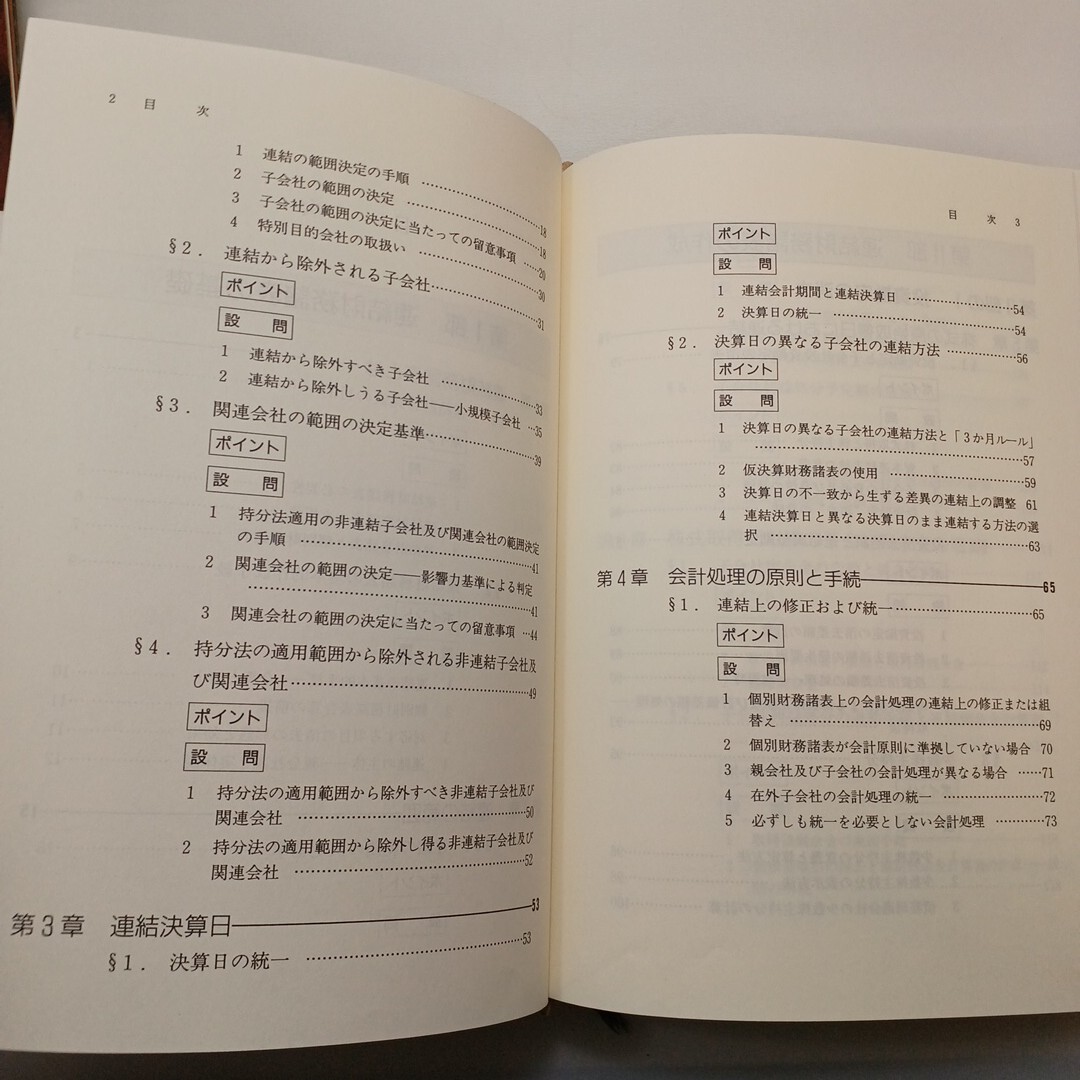 2 目 次
1 連結の範囲決定の手順 ……………………18
2 子会社の範囲の決定 ……………………18
3 子会社の範囲の決定に当たっての留意事項 ……20
4 特別目的会社の取扱い ……………………30
§2. 連結から除外される子会社……………………31
ポイント
設 問
1 連結から除外すべき子会社 ……………………33
2 連結から除外しうる子会社——小規模子会社 …35
§3. 関連会社の範囲の決定基準……………………39
ポイント
設 問
1 持分法適用の非連結子会社及び関連会社の範囲決定
の手順 ……………………41
2 関連会社の範囲の決定——影響力基準による判定
……………………41
3 関連会社の範囲の決定に当たっての留意事項 …44
§4. 持分法の適用範囲から除外される非連結子会社及
び関連会社……………………49
ポイント
設 問
1 持分法の適用範囲から除外すべき非連結子会社及び
関連会社 ……………………50
2 持分法の適用範囲から除外し得る非連結子会社及び
関連会社 ……………………52
第3章 連結決算日————53
§1. 決算日の統一 ……………………53
目 次 3
ポイント
設 問
1 連結会計期間と連結決算日 ……………………54
2 決算日の統一 ……………………54
§2. 決算日の異なる子会社の連結方法 ……………56
ポイント
設 問
1 決算日の異なる子会社の連結方法と「3か月ルール」
……………………57
2 仮決算財務諸表の使用 ……………………59
3 決算日の不一致から生ずる差異の連結上の調整 61
4 連結決算日と異なる決算日のまま連結する方法の選
択 ……………………63
第4章 会計処理の原則と手続————65
§1. 連結上の修正および統一……………………65
ポイント
設 問
1 個別財務諸表上の会計処理の連結上の修正または組
替え ……………………69
2 個別財務諸表が会計原則に準拠していない場合 70
3 親会社及び子会社の会計処理が異なる場合 ……71
4 在外子会社の会計処理の統一 ……………………72
5 必ずしも統一を必要としない会計処理 …………73